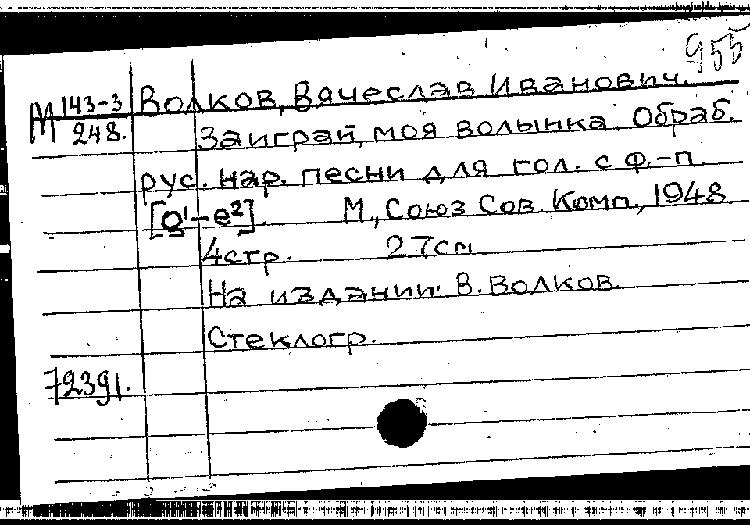 955
М 143-3 Волков, Вячеслав Иванович.
248. Заиграй, моя волынка. Обраб.
рус. нар. песни для гол. с ф.-п.
[е¹–e²]. М., Союз Сов. Комп., 1948
4 стр. 27 см
На издании: В. Волков.
Стеклогр.
72391.